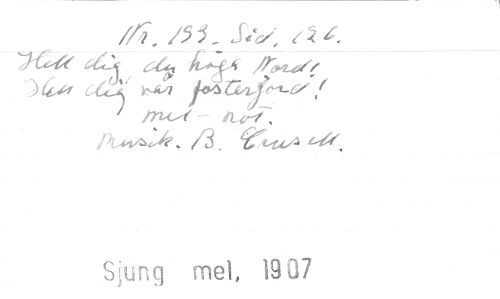 Nr. 193. Sid. 126.
Hell dig, du höga Nord!
Hell dig vår fosterjord!
mel-not.
Musik. B. Crusell.
Sjung mel, 1907